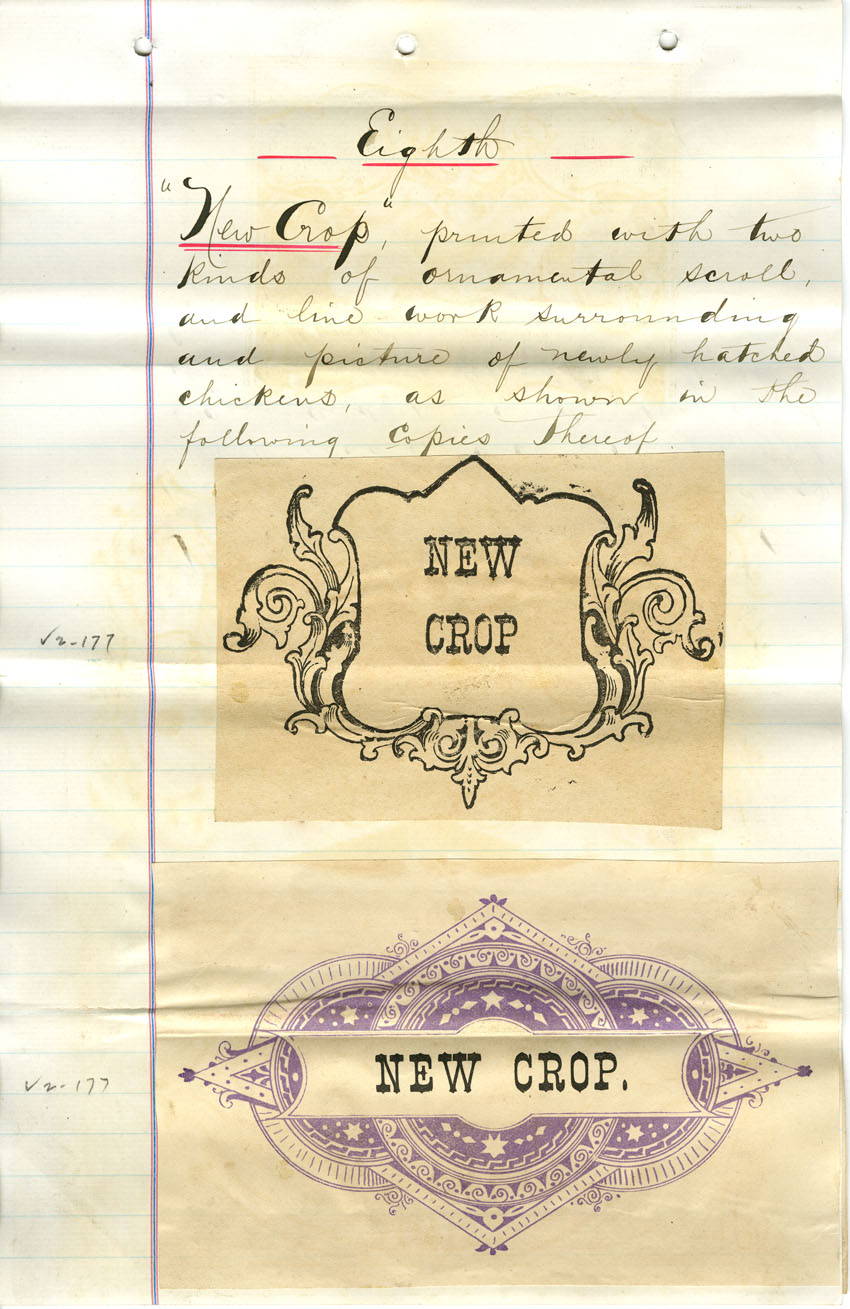 Eighth
"New Crop", printed with two
kinds of ornamental scroll,
and line work surrounding
and picture of newly hatched
chickens, as shown in the
following copies thereof.
NEW
CROP
V2-177
NEW CROP.
V2-177